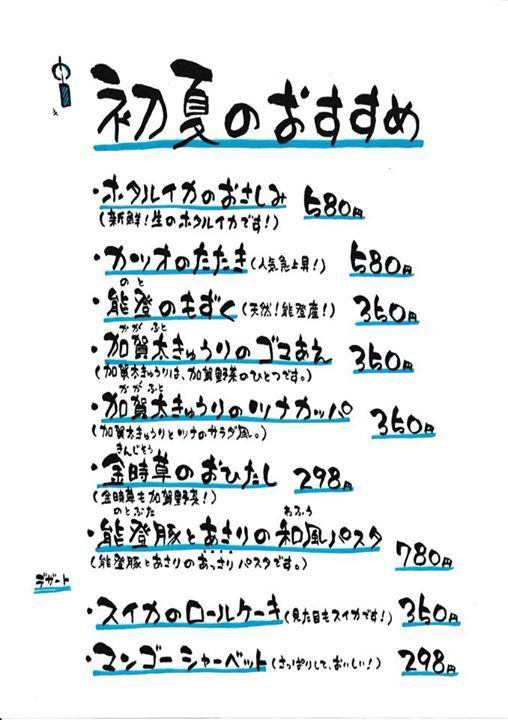 初夏のおすすめ
・ホタルイカのおさしみ 580円
(新鮮!生のホタルイカです!)
・カツオのたたき(人気急上昇!) 580円
のと
・能登のもずく(天然!能登産!) 350円
かがぶと
・加賀太きゅうりのゴマあえ 350円
(加賀太きゅうりは、加賀野菜のひとつです。)
かがぶと
・加賀太きゅうりのツナカッパ 350円
(加賀太きゅうりとツナのサラダ風。)
きんじそう
・金時草のおひたし 298円
(金時草も加賀野菜!)
のとぶた わふう
・能登豚とあさりの和風パスタ 780円
(能登豚とあさりのあっさりパスタです。)
デザート
・スイカのロールケーキ(見た目もスイカです!) 350円
・マンゴーシャーベット(さっぱりして、おいしい!) 298円